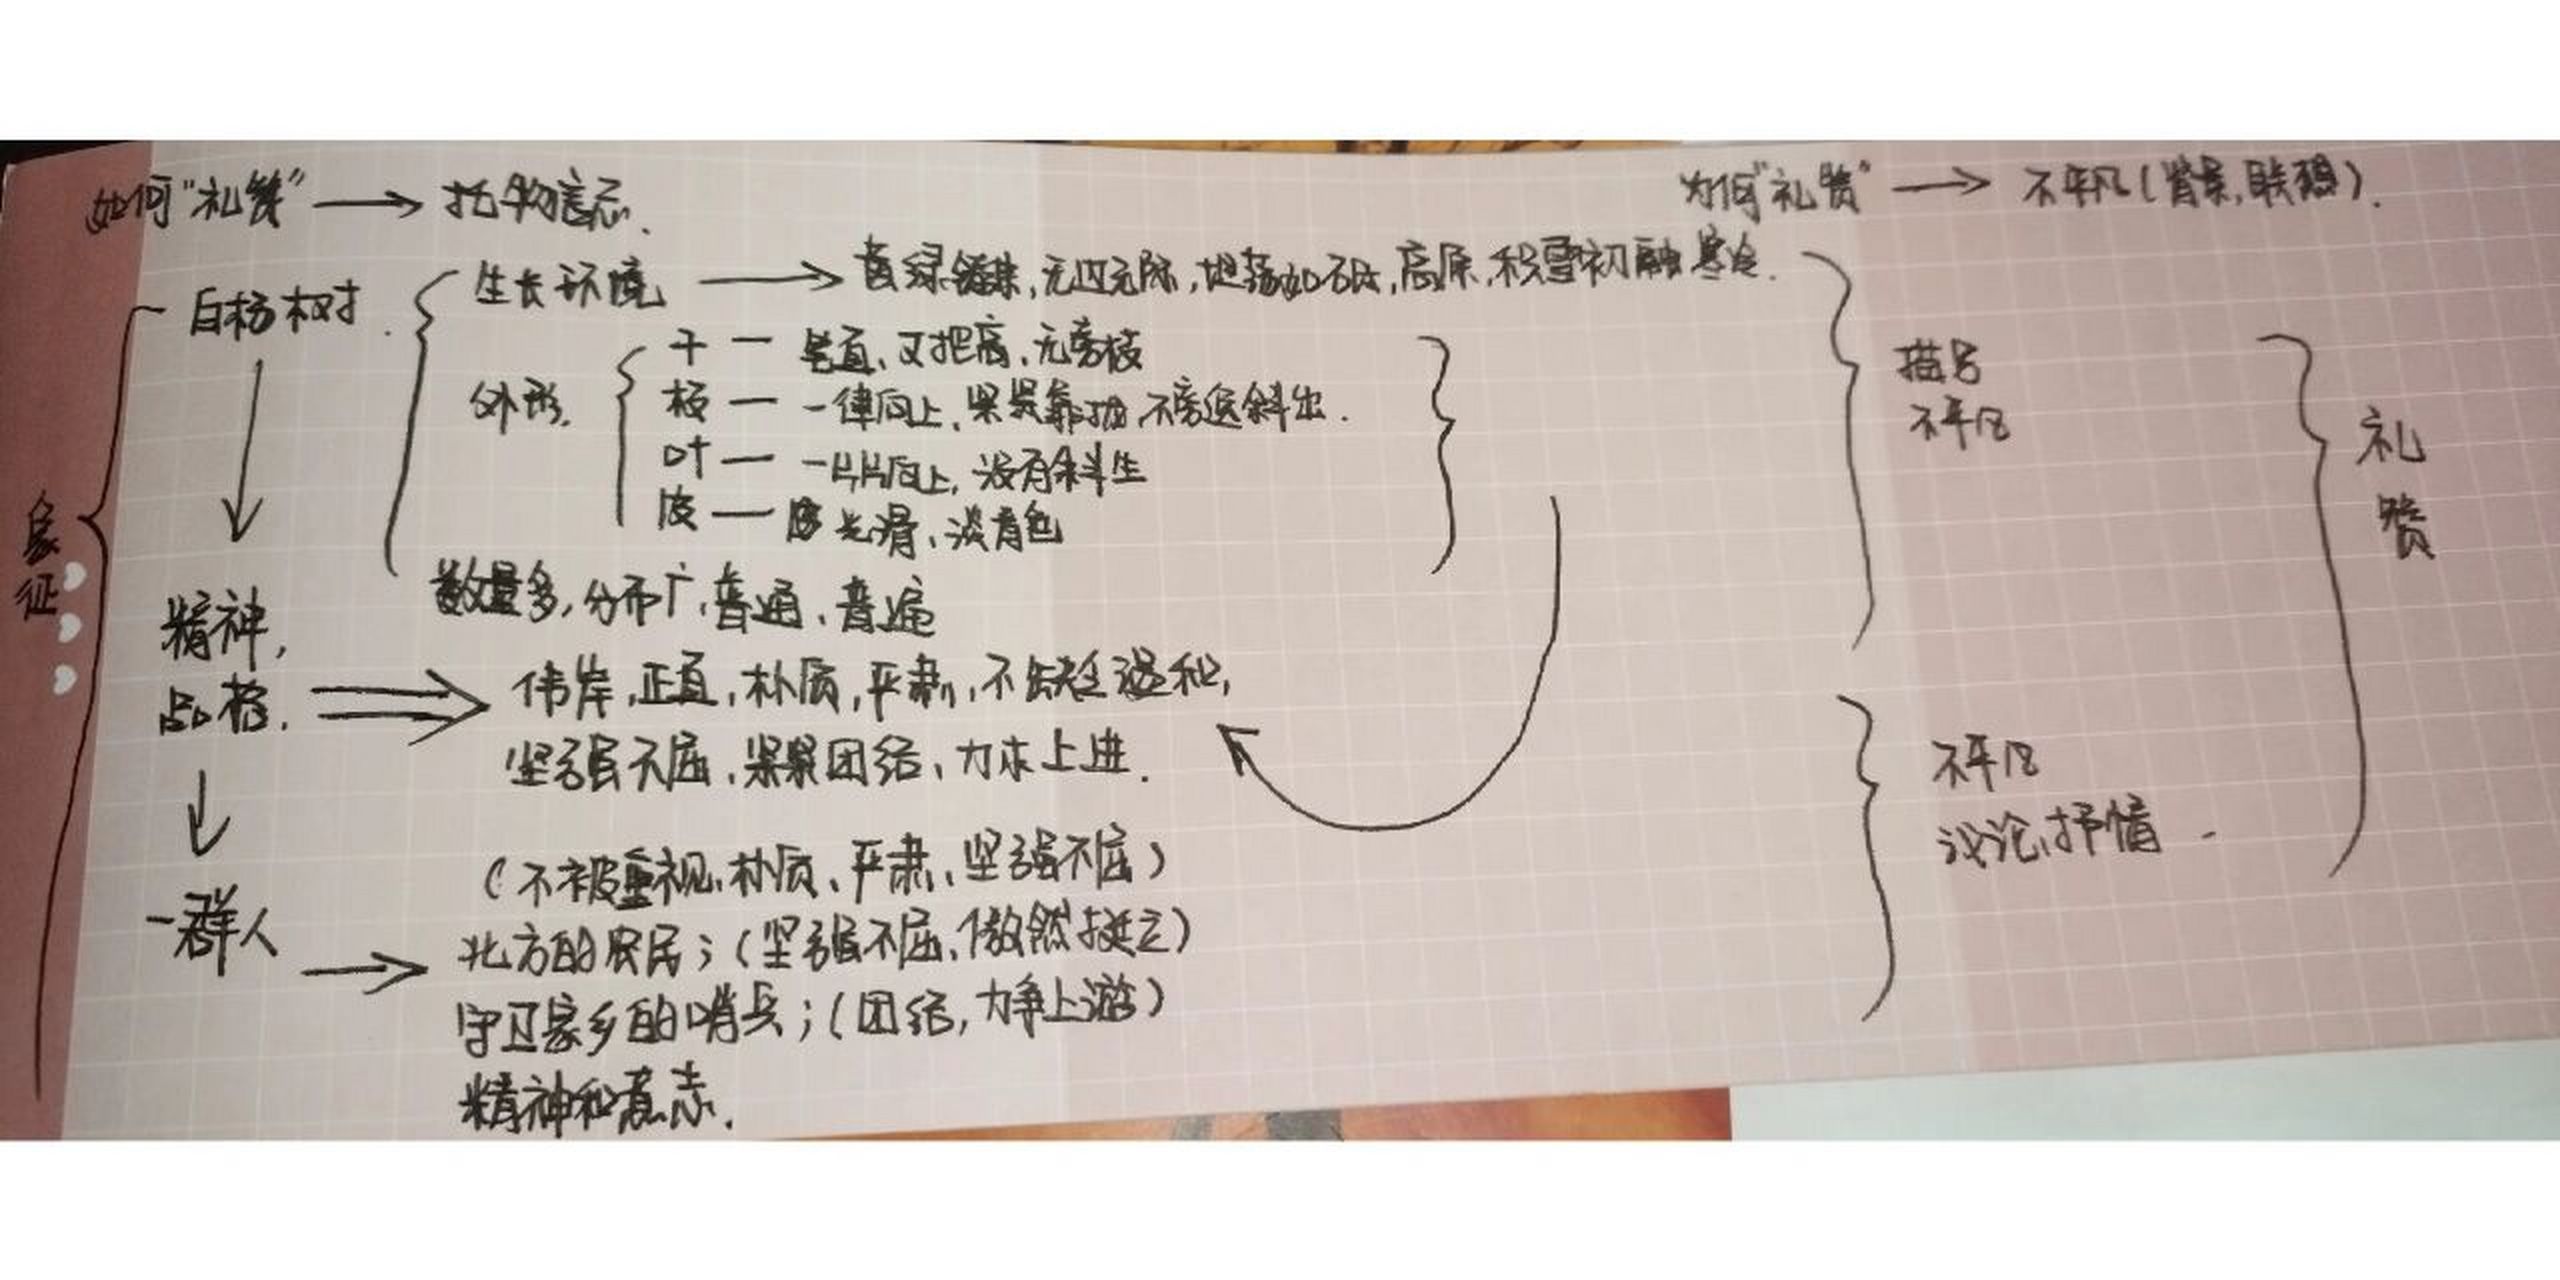 如何“礼赞” 托物言志.
为何“礼赞” 不平凡(背景,联想).
象征
白杨树.
生长环境 黄绿错综,无边无际,坦荡如砥,高原,积雪初融 寒冷.
外形.
干 — 笔直、又挺高、无旁枝
枝 — 一律向上、紧紧靠拢,不旁逸斜出.
叶 — 一片片向上,没有斜生
皮 — 光滑、淡青色
数量多,分布广,普通、普遍
描写
不平凡
礼赞
精神,
品格.
伟岸,正直,朴质,严肃,不缺乏温和,
坚强不屈、紧紧团结、力求上进.
不平凡
议论,抒情.
一群人
(不被重视,朴质、严肃、坚强不屈)
北方的农民;(坚强不屈,傲然挺立)
守卫家乡的哨兵;(团结,力争上游)
精神和意志.